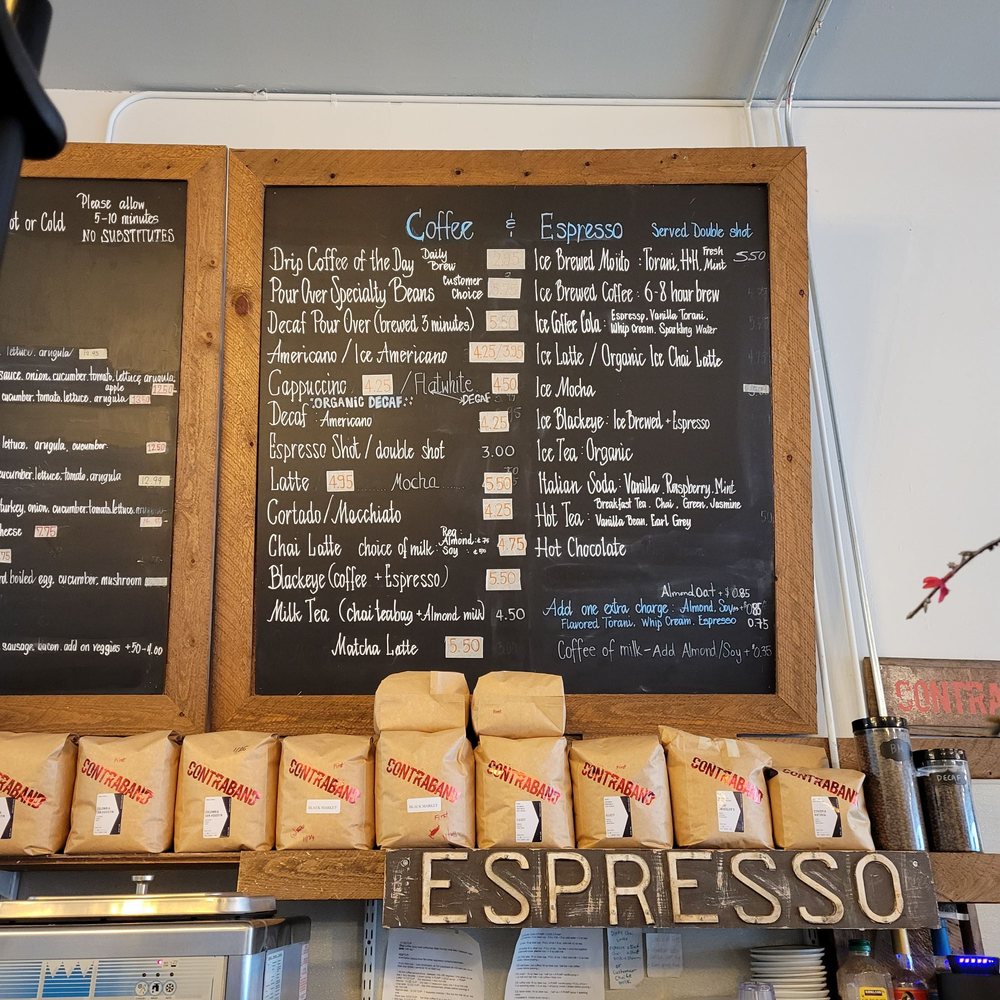 ot or Cold
Please allow
5-10 minutes
NO SUBSTITUTES
lettuce. arugula
sauce. onion. cucumber. tomato. lettuce. arugula.
apple
12.50
cucumber. tomato. lettuce. arugula
lettuce. arugula. cucumber
12.50
cucumber. lettuce. tomato. arugula
12.99
turkey. onion. cucumber. tomato. lettuce.
heese 7.75
d boiled egg. cucumber. mushroom
sausage. bacon. add on veggies +.50-4.00
Coffee & Espresso Served Double shot
Drip Coffee of the Day Daily Brew
Pour Over Specialty Beans Customer Choice
Decaf Pour Over (brewed 3 minutes) 5.50
Americano / Ice Americano 4.25/3.95
Cappuccino 4.25 / Flatwhite 4.50
"ORGANIC DECAF" DECAF
Decaf : Americano 4.25
Espresso Shot / double shot 3.00
Latte 4.95 Mocha 5.50
Cortado/Macchiato 4.25
Chai Latte choice of milk: Reg Almond Soy 4.75
Blackeye (Coffee + Espresso) 5.50
Milk Tea (chai teabag + Almond milk) 4.50
Matcha Latte 5.50
Ice Brewed Mojito : Torani, H+H, Fresh Mint 5.50
Ice Brewed Coffee : 6-8 hour brew
Ice Coffee Cola : Espresso, Vanilla Torani,
Whip Cream, Sparkling Water
Ice Latte / Organic Ice Chai Latte
Ice Mocha
Ice Blackeye : Ice Brewed + Espresso
Ice Tea : Organic
Italian Soda : Vanilla, Raspberry, Mint
Hot Tea : Breakfast Tea, Chai, Green, Jasmine
Vanilla Bean, Earl Grey
Hot Chocolate
Almond Oat + $0.85
Add one extra charge : Almond, Soy
Flavored Torani, Whip Cream, Espresso 0.75
Coffee of milk - Add Almond/Soy + 0.35
CONTRA
CONTRABAND
CONTRABAND
CONTRABAND
CONTRABAND
BLACK MARKET
CONTRABAND
BLACK MARKET
CONTRABAND
CONTRABAND
CONTRABAND
CONTRABAND
DECAF
ESPRESSO